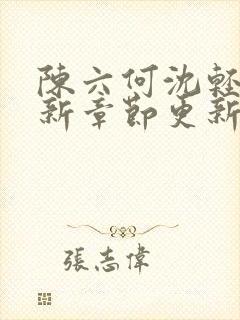 陳六何沈輕
新章節更新
張志偉